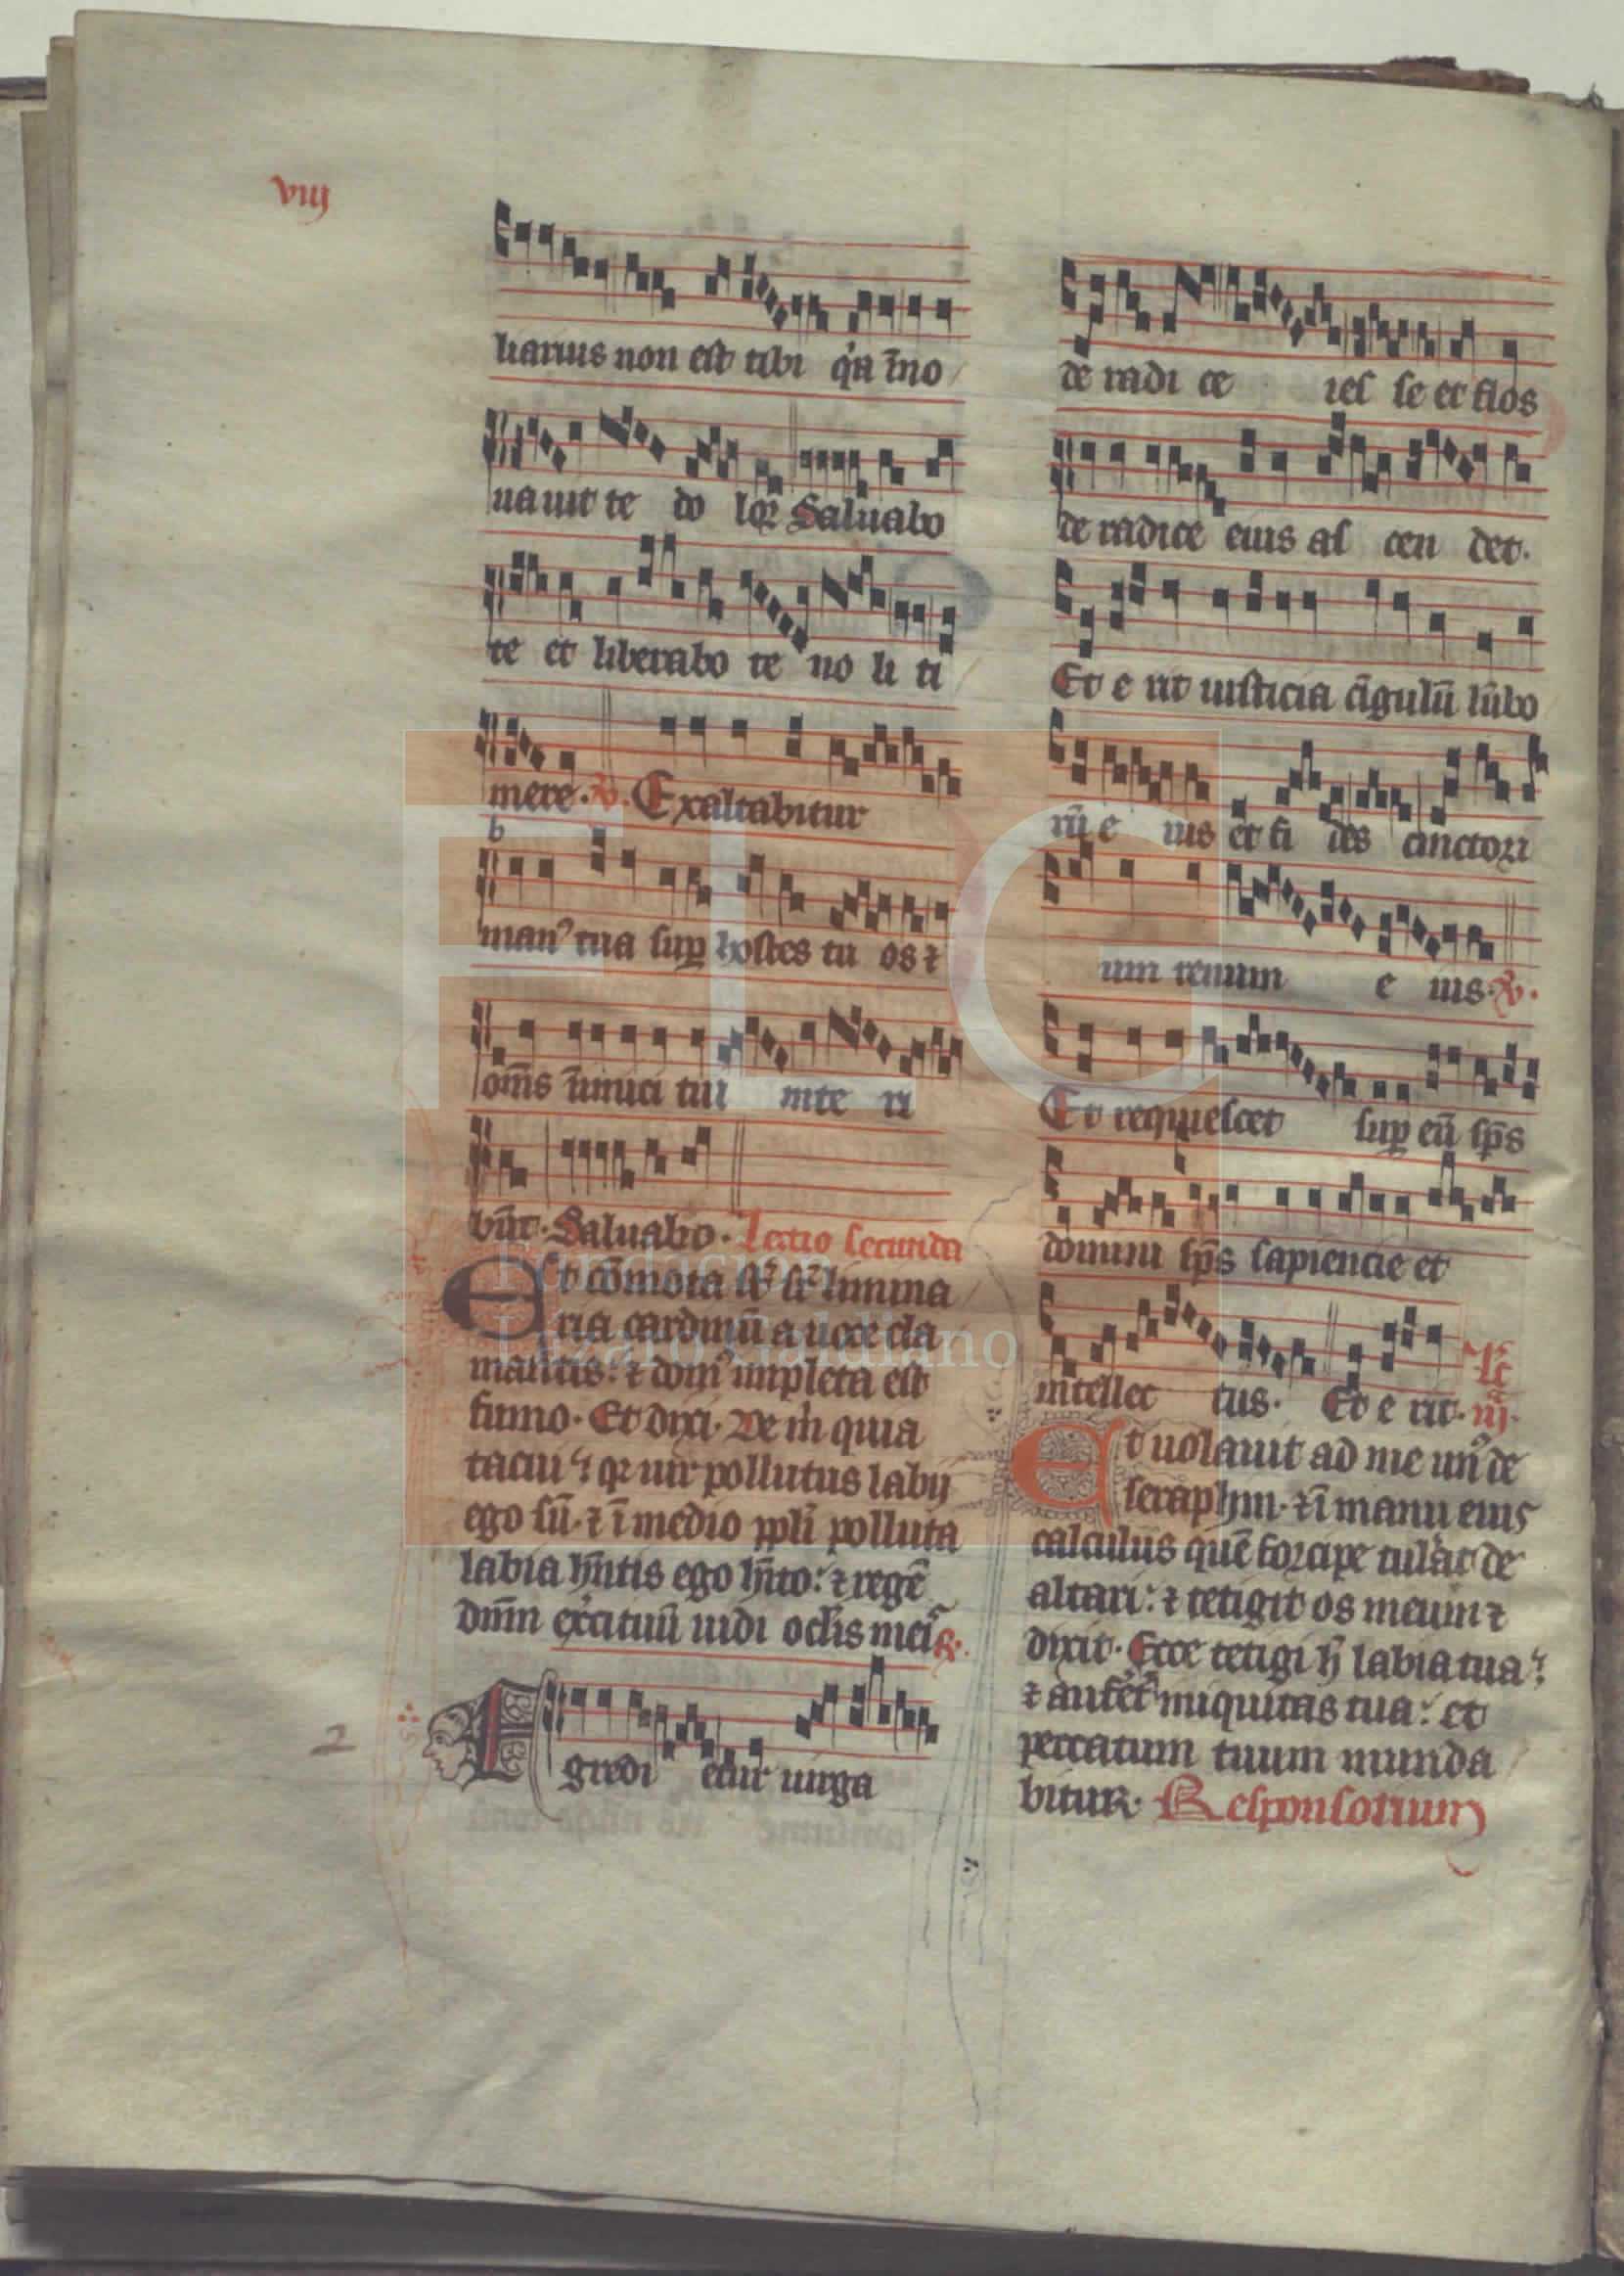 viij
liarius non est tibi q'a īno
uauit te do lor Saluabo
te et liberabo te no li ti
mere. V. Exaltabitur
b
man' tua sup hostes tu os ⁊
om̄s īimici tui inte ri
būt. Saluabo. Lectio secunda
Et cōmota sūt sūt limina
ria cardinū a uoce cla
mantis: ⁊ dom' impleta est
fumo. Et dixi. Ve m̄ quia
tacui: qr uir pollutus labij
ego sū. ⁊ ī medio ppli polluta
labia hn̄tis ego hīto: ⁊ regē
dn̄m exc̄ituū uidi oclis meis R.
Egredi etur uirga
2
de radi ce ies se et flos
de radice eius as cen det.
Et e rit iusticia cīgulū lūbo
rū e ius et fi des cinctori
um renum e ius. V.
Et requiescet sup eū sps
domini sps sapiencie et
intellec tus. Et e rit. Lc̄ iij.
Et uolauit ad me un' de
seraphin. ⁊ ī manu eius
calculus quē forcipe tulerat de
altari: ⁊ tetigit os meum ⁊
dixit. Ecce tetigi h̄ labia tua:
⁊ aufert' iniquitas tua: et
peccatum tuum munda
bitur. Responsorium
FLG
Fundación
Lázaro Galdiano